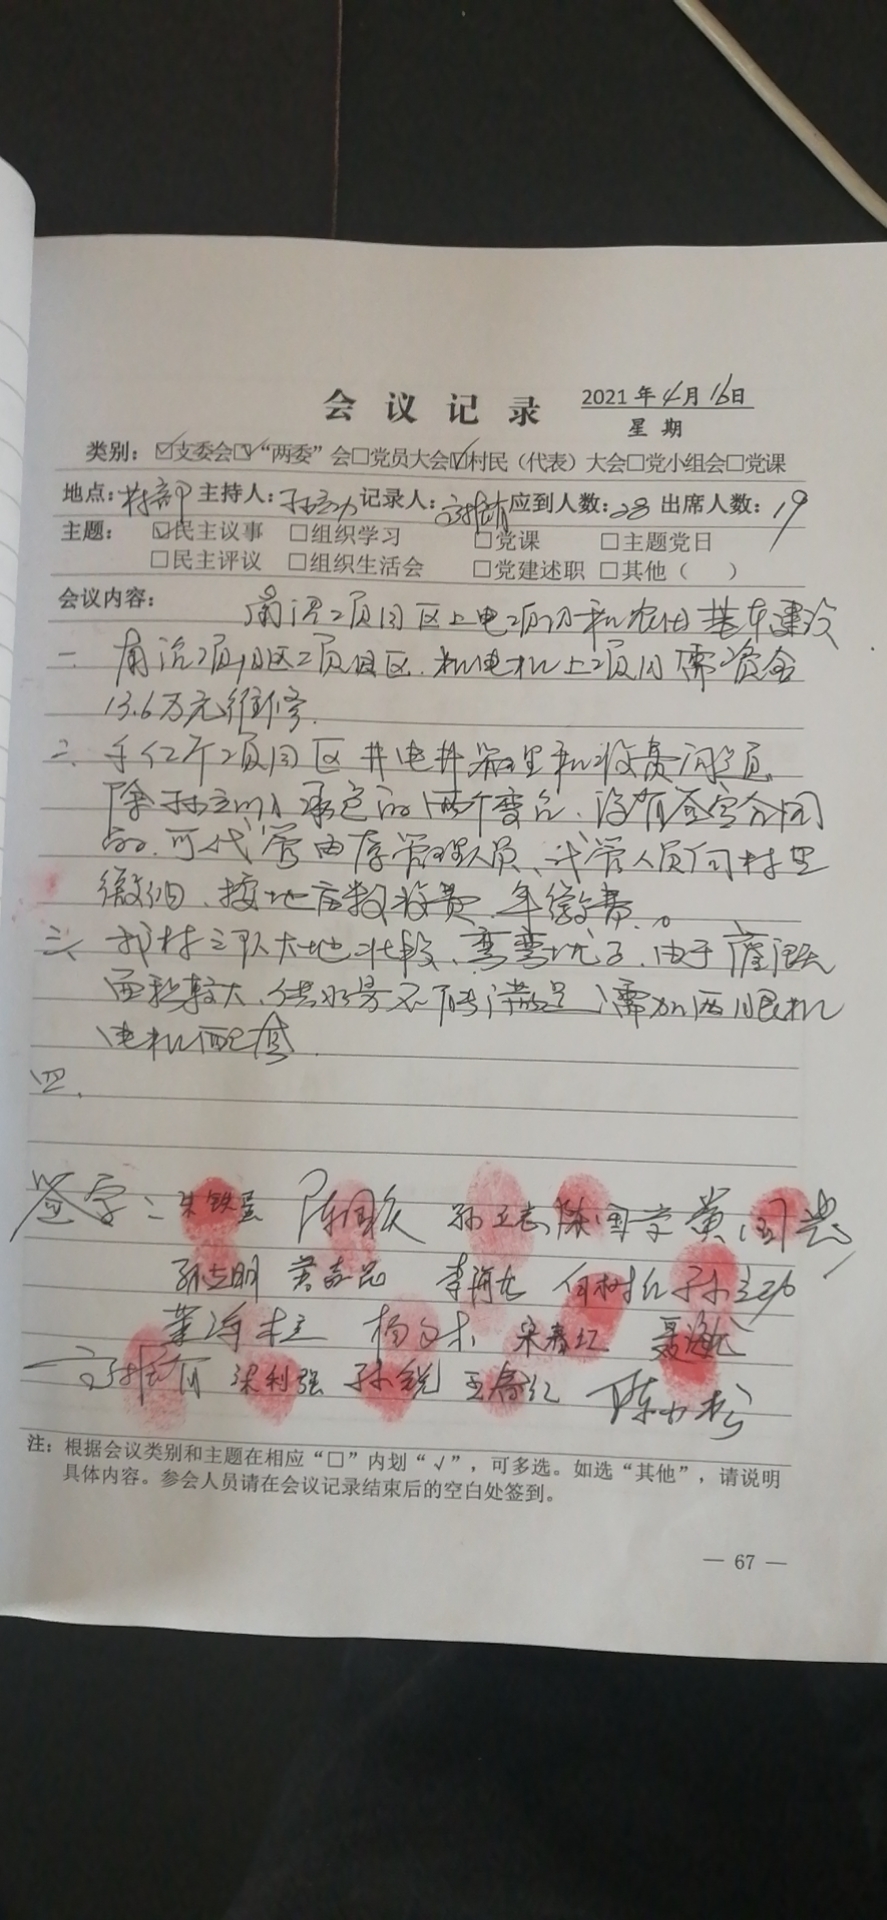 会议记录 2021年4月16日
星期
类别：☑支委会☑“两委”会□党员大会☑村民（代表）大会□党小组会□党课
地点：村部 主持人： 记录人： 应到人数：28 出席人数：19
主题：☑民主议事 □组织学习 □党课 □主题党日
□民主评议 □组织生活会 □党建述职 □其他（ ）
会议内容： 项目区上电 和农田基本建设
一、 项目区 机电机上项目需资金
13.6万元维修.
二、 个项目区井电井管理和收费问题,
除 承包的两个变台、没有签字合同
的.可代管由 管理人员、代管人员向村里
缴纳、按地亩数收费、年缴费。
三、我村三队大地北段、弯弯坑子、由于灌溉
面积较大、供水量不能满足、需加两眼机
电机配套.
四、
签字：朱铁 陈国 孙 陈国 黄国
孙志明 黄 李海龙 何树红 孙
董海柱 杨 宋春红 聂海龙
梁利强 孙锐 王春红 陈小松
注：根据会议类别和主题在相应“□”内划“√”，可多选。如选“其他”，请说明
具体内容。参会人员请在会议记录结束后的空白处签到。
— 67 —